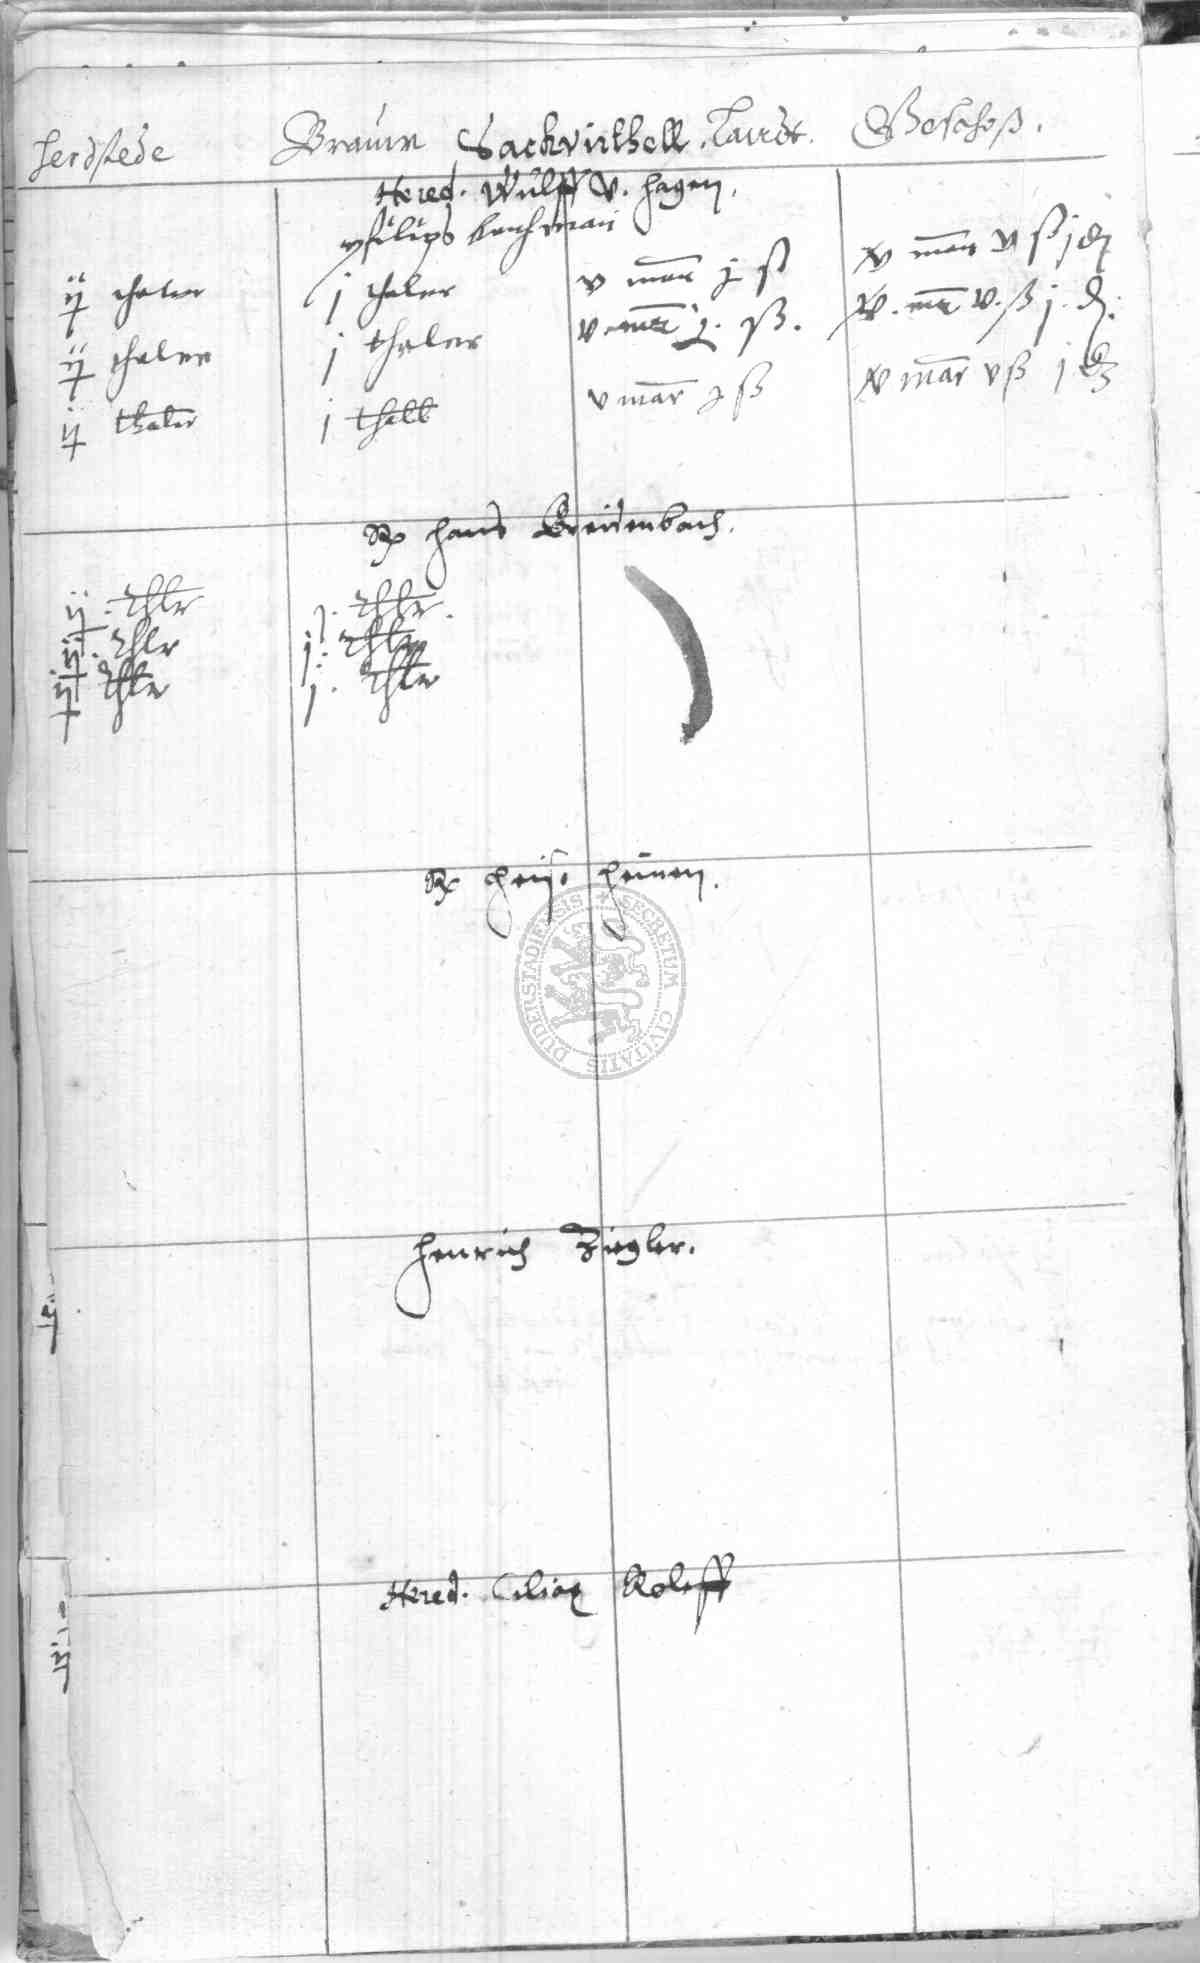 herdstede Brauw Sackvirthell. Landt. Geschoß.
Hered. Wulff v. hagen.
ÿ thaler j thaler v mar j ß xv mar v ß j
ÿ thaler j thaler v mar j. ß. xv. mar v. ß j.
ÿ thaler j v mar j ß xv mar v ß j
hans Breidenbach.
ÿ. thlr j. thlr.
ÿ. thlr j. thlr
ÿ thlr j. thlr
SECRETUM CIVITATIS DUDERSTADIENSIS
Henrich Ziegler.
Hered. Ciliax Roleff